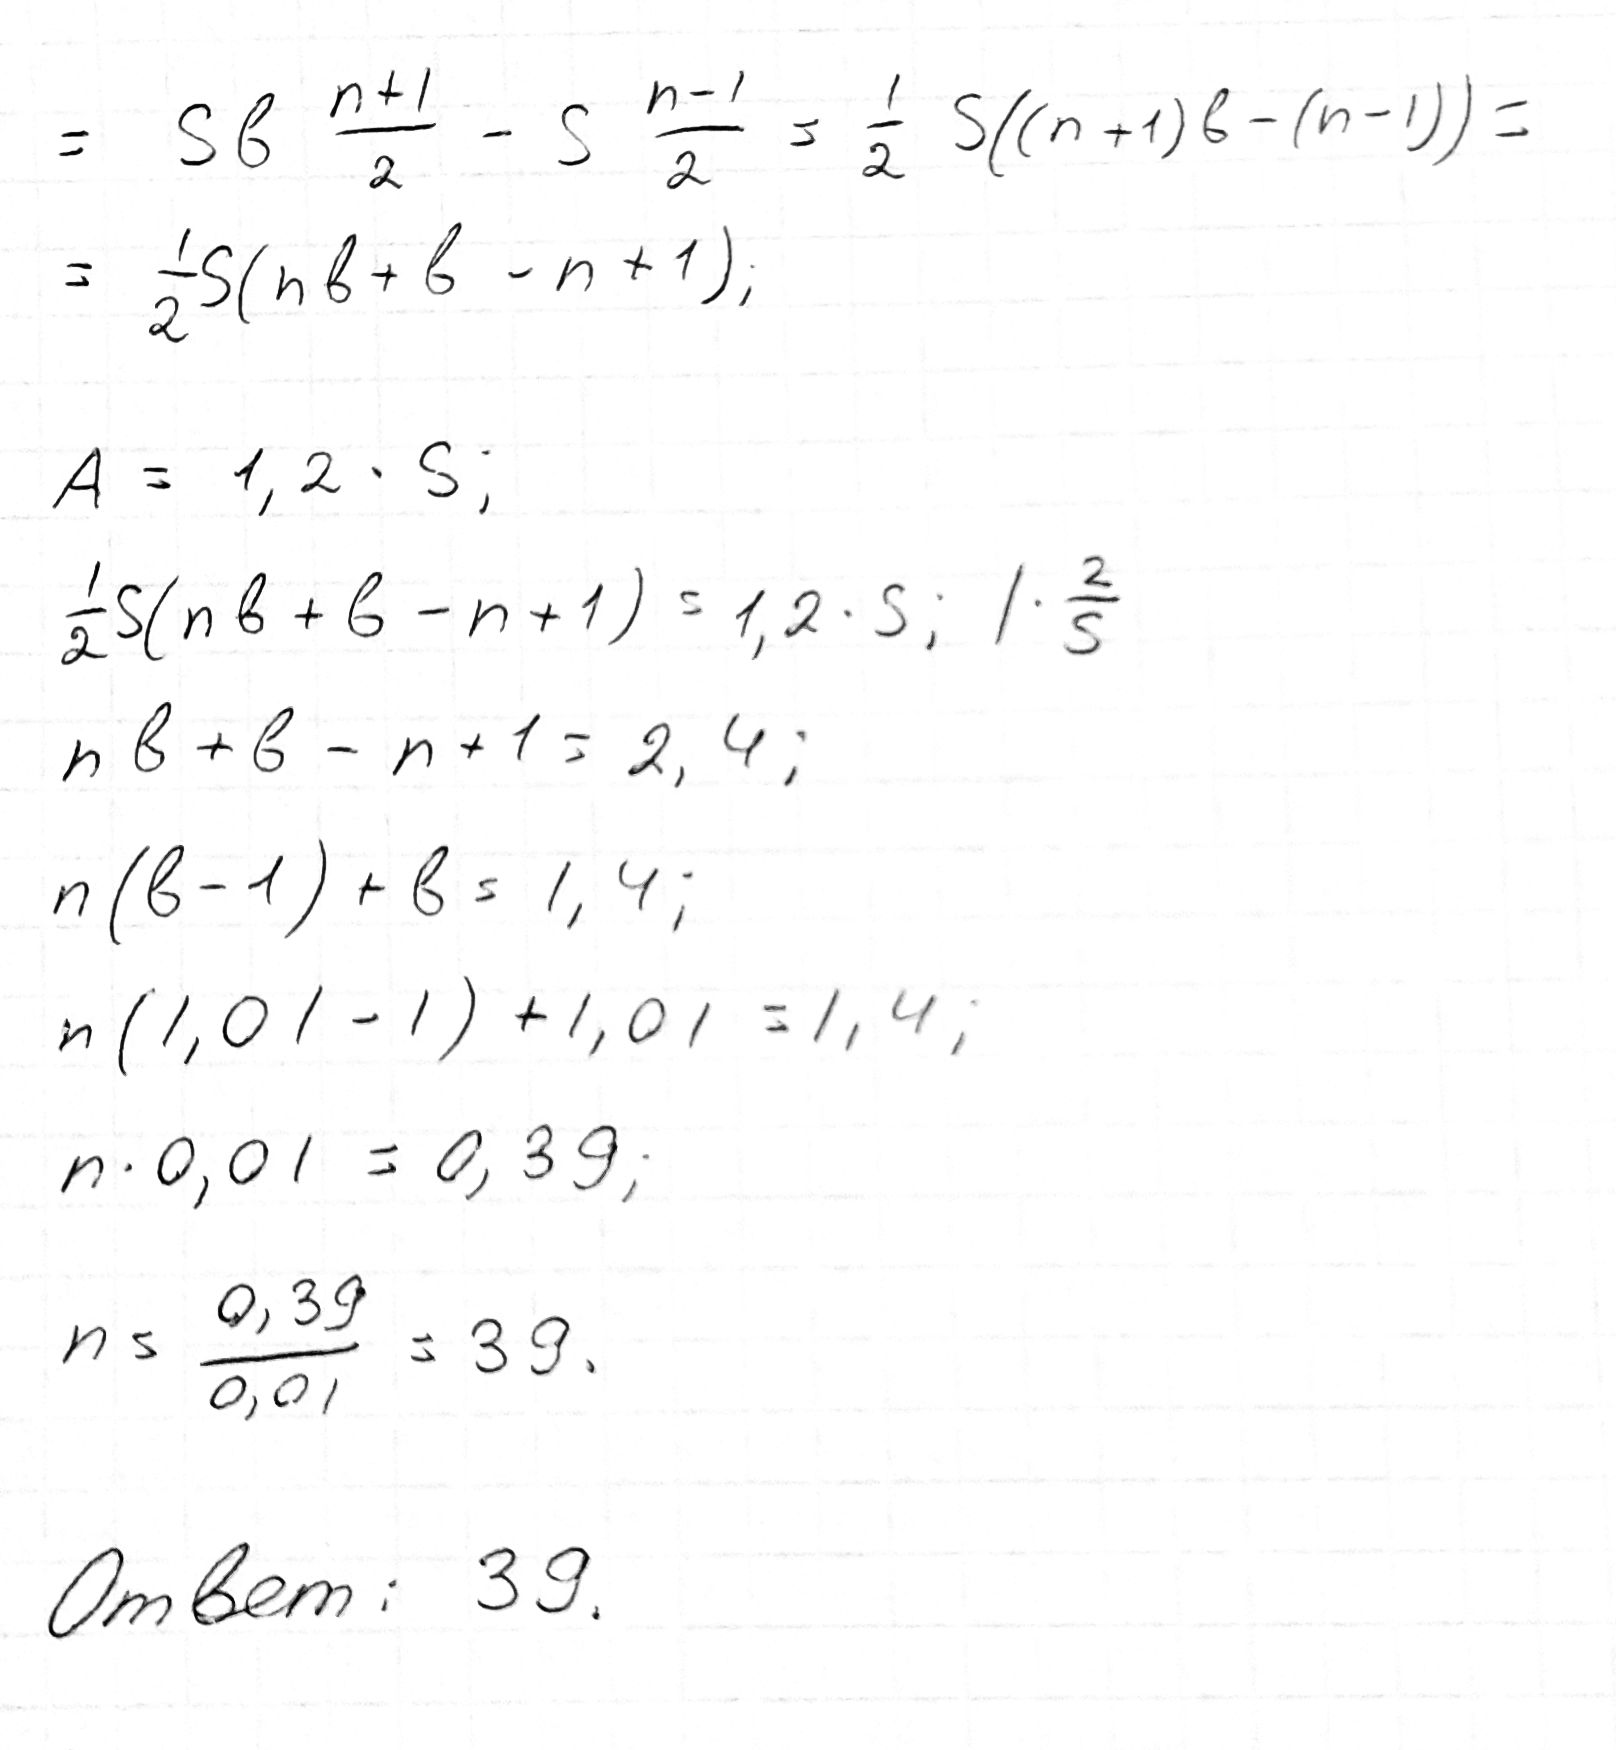 = Sb (n+1)/2 - S (n-1)/2 = 1/2 S((n+1)b-(n-1)) =
= 1/2 S(nb+b-n+1);
A = 1,2 · S;
1/2 S(nb+b-n+1) = 1,2 · S; | · 2/S
nb+b-n+1 = 2,4;
n(b-1)+b = 1,4;
n(1,01-1)+1,01 = 1,4;
n · 0,01 = 0,39;
n = 0,39/0,01 = 39.
Ответ: 39.